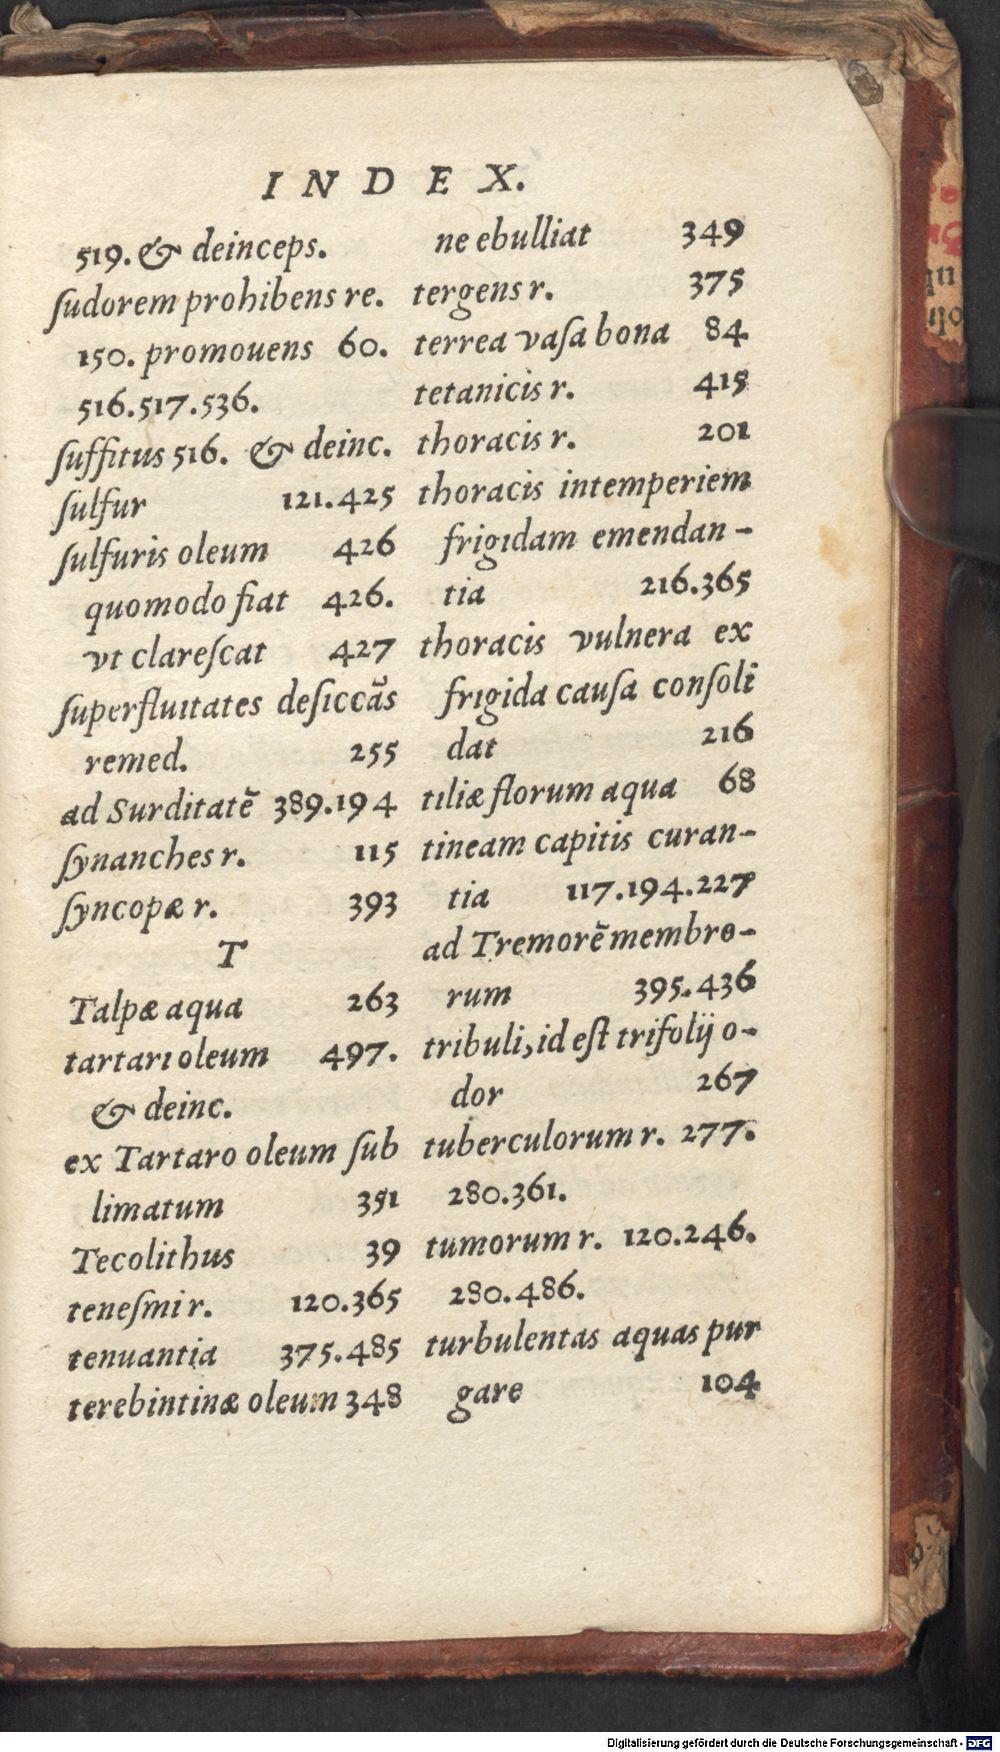 INDEX.
519. & deinceps.
ſudorem prohibens re.
150. promouens 60.
516.517.536.
ſuffitus 516. & deinc.
ſulfur 121.425
ſulfuris oleum 426
quomodo fiat 426.
vt clareſcat 427
ſuperfluitates deſiccãs
remed. 255
ad Surditatē 389.194
ſynanches r. 115
ſyncopæ r. 393
T
Talpæ aqua 263
tartari oleum 497.
& deinc.
ex Tartaro oleum ſub
limatum 351
Tecolithus 39
teneſmi r. 120.365
tenuantia 375.485
terebintinæ oleum 348
ne ebulliat 349
tergens r. 375
terrea vaſa bona 84
tetanicis r. 415
thoracis r. 201
thoracis intemperiem
frigidam emendan-
tia 216.365
thoracis vulnera ex
frigida cauſa conſoli
dat 216
tiliæ florum aqua 68
tineam capitis curan-
tia 117.194.227
ad Tremorē membro-
rum 395.436
tribuli, id eſt trifolij o-
dor 267
tuberculorum r. 277.
280.361.
tumorum r. 120.246.
280.486.
turbulentas aquas pur
gare 104
Digitalisierung gefördert durch die Deutsche Forschungsgemeinschaft - DFG